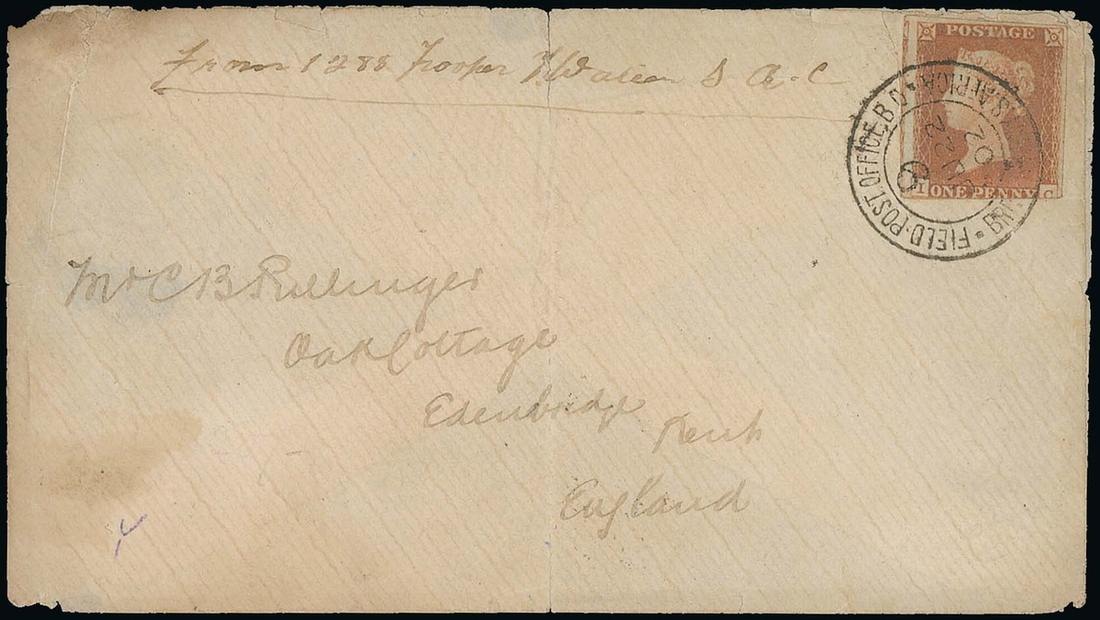 From 1288 Trooper S A. C
POSTAGE
ONE PENNY
I C
FIELD·POST OFFICE, B.O. S. AFRICA
Mr C B Pullinger
Oak Cottage
Edenbridge
Kent
England